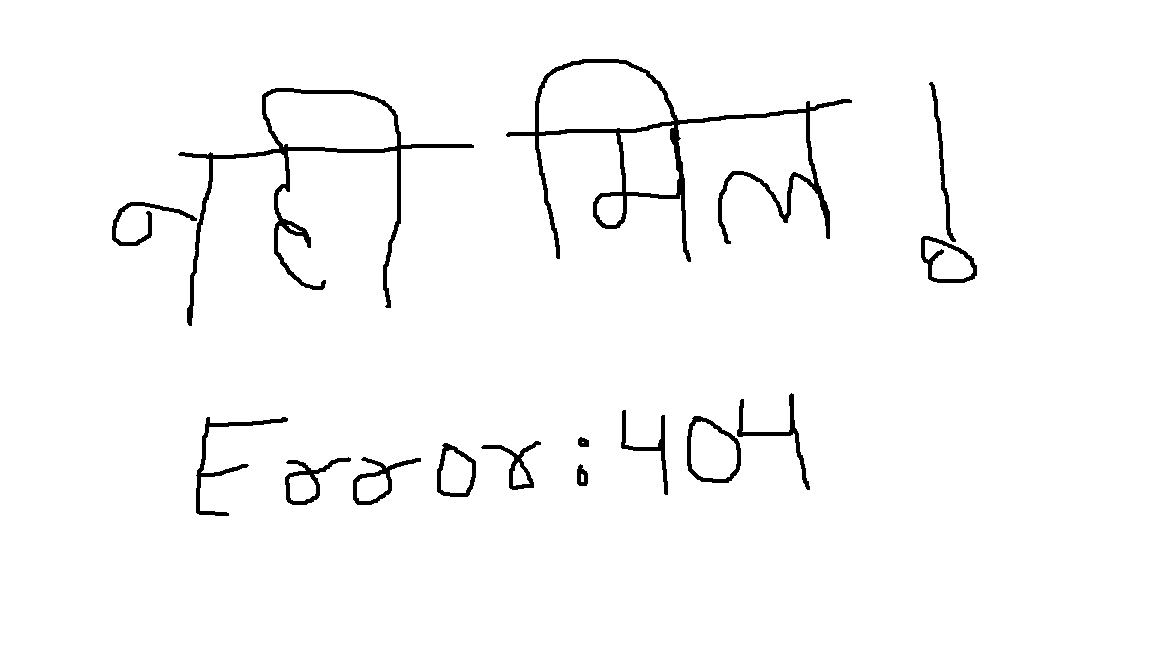 नही मिल!
Error:404